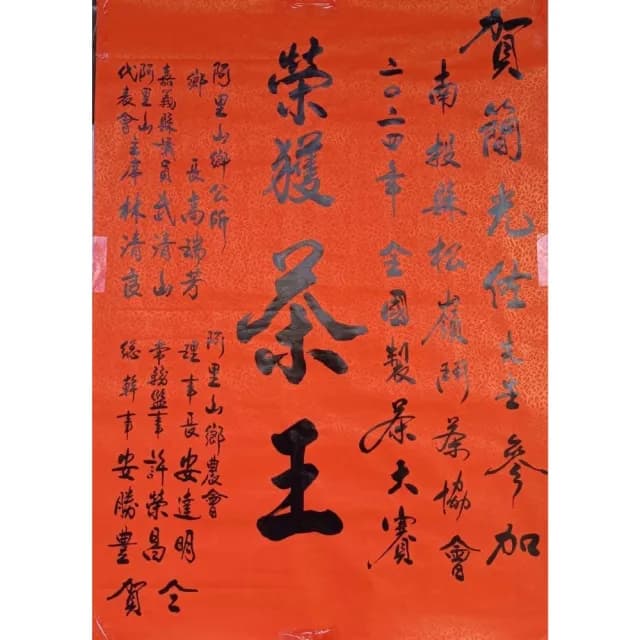 賀簡光佐先生參加
南投縣松嶺鬥茶協會
二〇二四年全國製茶大賽
榮獲茶王
阿里山鄉公所
鄉長高瑞芳
嘉義縣議員武清山
阿里山
代表會主席林清良
阿里山鄉農會
理事長安達明
常務監事許榮昌
總幹事安勝豊
仝賀